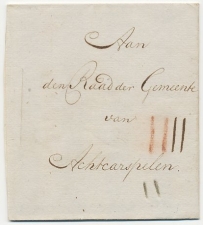 Aan
den Raad der Gemeente
van
Achtcarspelen.